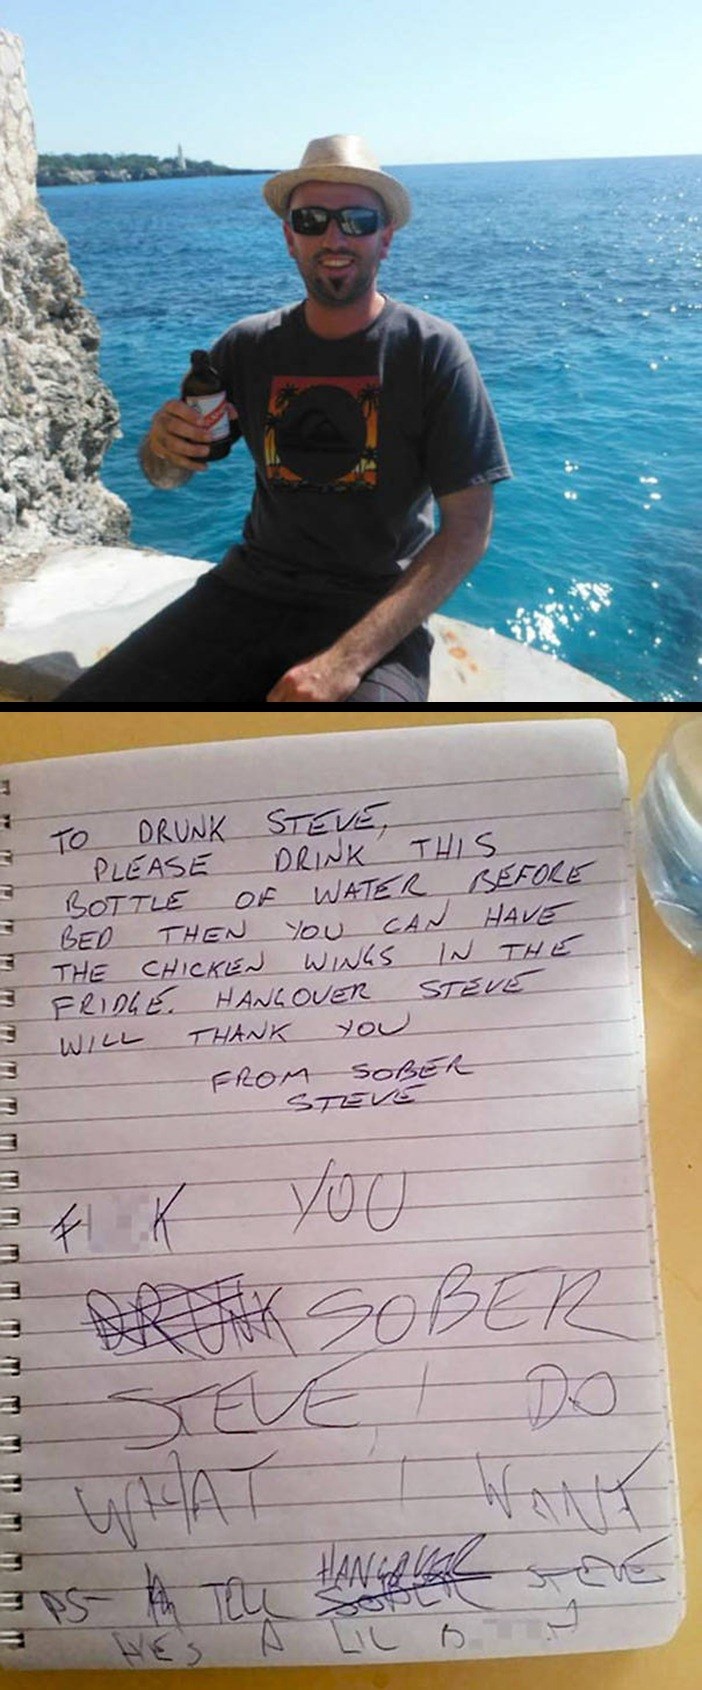 TO DRUNK STEVE,
PLEASE DRINK THIS
BOTTLE OF WATER BEFORE
BED THEN YOU CAN HAVE
THE CHICKEN WINGS IN THE
FRIDGE. HANGOVER STEVE
WILL THANK YOU
FROM SOBER
STEVE
F K YOU
DRUNK SOBER
STEVE, I DO
WHAT I WANT
HANGOVER
PS- TELL SOBER STEVE
HE'S A LIL B